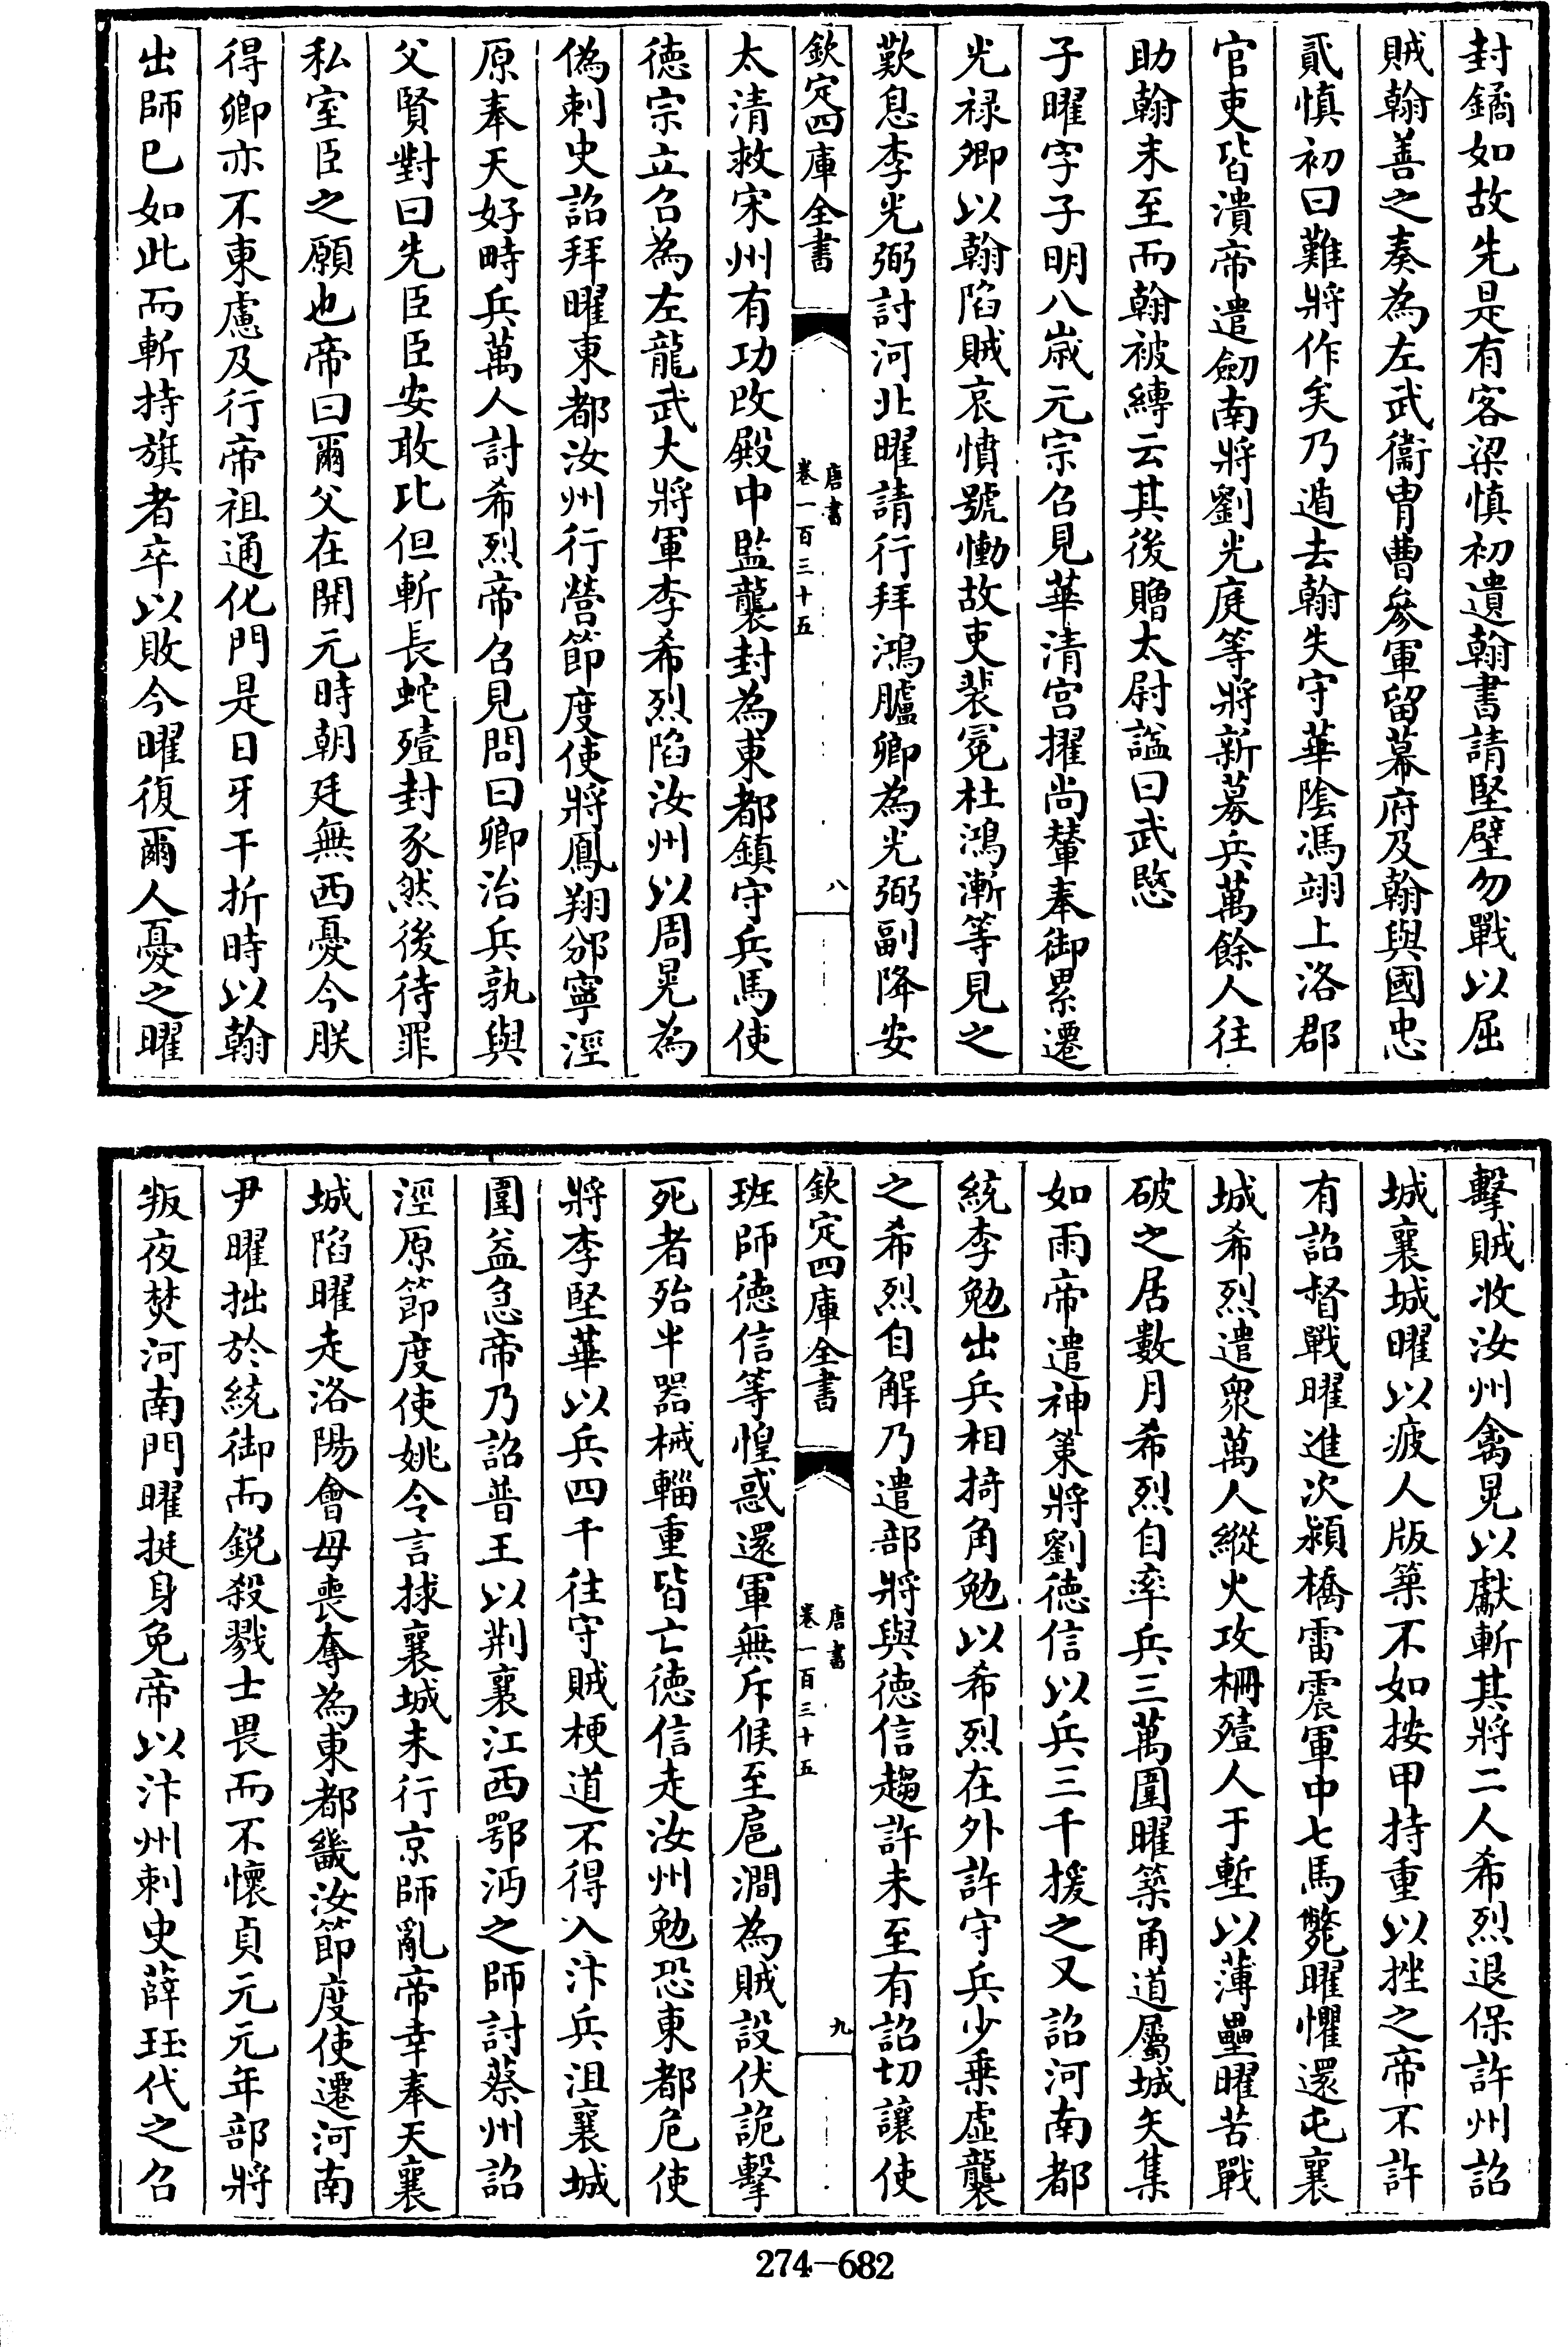 封鐍如故先是有客梁慎初遺翰書請堅壁勿戰以屈
賊翰善之奏為左武衞胄曹參軍留幕府及翰與國忠
貳慎初曰難將作矣乃遁去翰失守華陰馮翊上洛郡
官吏皆潰帝遣劒南將劉光庭等將新募兵萬餘人往
助翰未至而翰被縛云其後贈太尉諡曰武愍
子曜字子明八嵗元宗召見華清宫擢尚輦奉御累遷
光禄卿以翰陷賊哀憤號慟故吏裴冕杜鴻漸等見之
歎息李光弼討河北曜請行拜鴻臚卿為光弼副降安
欽定四庫全書
唐書
卷一百三十五
八
太清救宋州有功改殿中監襲封為東都鎮守兵馬使
徳宗立召為左龍武大將軍李希烈陷汝州以周晃為
偽刺史詔拜曜東都汝州行營節度使將鳳翔邠寧涇
原奉天好畤兵萬人討希烈帝召見問曰卿治兵孰與
父賢對曰先臣臣安敢比但斬長蛇殪封豕然後待罪
私室臣之願也帝曰爾父在開元時朝廷無西憂今朕
得卿亦不東慮及行帝祖通化門是日牙干折時以翰
出師已如此而斬持旗者卒以敗今曜復爾人憂之曜
擊賊收汝州禽晃以獻斬其將二人希烈退保許州詔
城襄城曜以疲人版築不如按甲持重以挫之帝不許
有詔督戰曜進次潁橋雷震軍中七馬斃曜懼還屯襄
城希烈遣衆萬人縱火攻柵殪人于塹以薄壘曜苦戰
破之居數月希烈自率兵三萬圍曜築甬道屬城矢集
如雨帝遣神策將劉徳信以兵三千援之又詔河南都
統李勉出兵相掎角勉以希烈在外許守兵少乗虚襲
之希烈自解乃遣部將與徳信趨許未至有詔切讓使
欽定四庫全書
唐書
卷一百三十五
九
班師徳信等惶惑還軍無斥候至扈澗為賊設伏詭擊
死者殆半器械輜重皆亡徳信走汝州勉恐東都危使
將李堅華以兵四千往守賊梗道不得入汴兵沮襄城
圍益急帝乃詔普王以荆襄江西鄂沔之師討蔡州詔
涇原節度使姚令言捄襄城未行京師亂帝幸奉天襄
城陷曜走洛陽會母喪奪為東都畿汝節度使遷河南
尹曜拙於統御而鋭殺戮士畏而不懷貞元元年部將
叛夜焚河南門曜挺身免帝以汴州刺史薛珏代之召
274-682